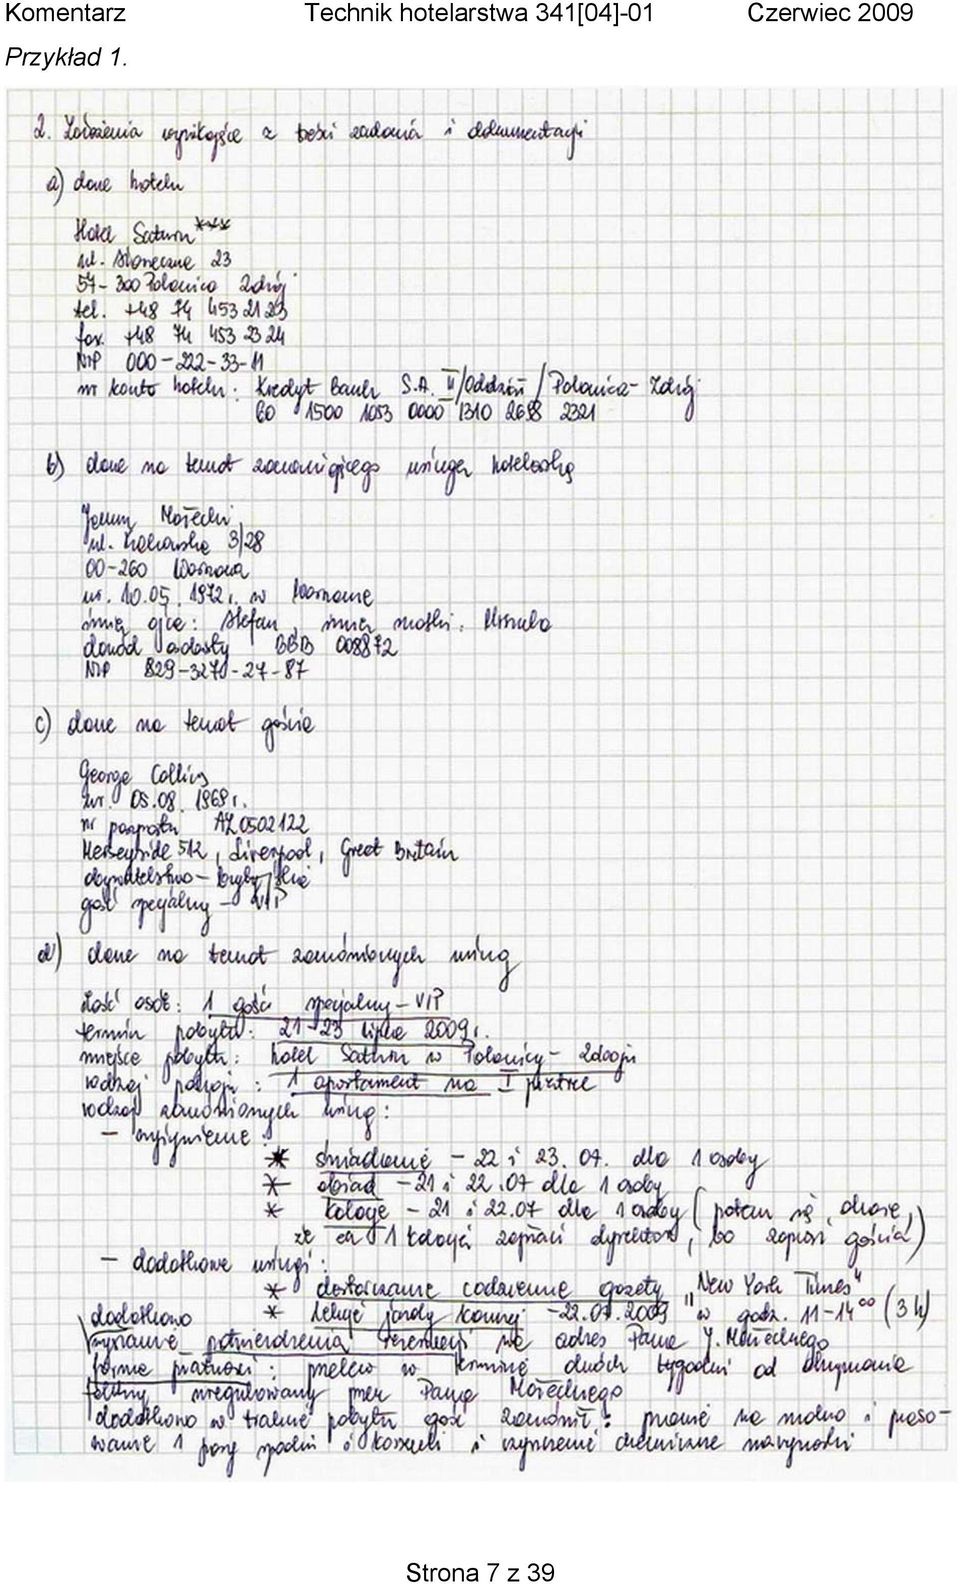 Komentarz Technik hotelarstwa 341[04]-01 Czerwiec 2009
Przykład 1.
2. Założenia wynikające z treści zadania i dokumentacji
a) dane hotelu
Hotel Saturn***
ul. Słoneczna 23
57-300 Polanica Zdrój
tel. +48 74 453 21 23
fax. +48 74 453 23 24
NIP 000-222-33-11
nr konta hotelu: Kredyt Bank S.A. II/Oddział/Polanica-Zdrój
60 1500 1053 0000 1310 2698 2321
b) dane na temat zamawiającego usługę hotelarską
Morecki
ul. Krakowska 3/28
00-260 Warszawa
ur. 10.05.1972 r. w Warszawie
imię ojca: Stefan, imię matki: Urszula
dowód osobisty BBB 008872
NIP 829-3270-27-87
c) dane na temat gościa
George Collins
ur. 05.08.1969 r.
nr paszportu AL0502122
Merseyside 512, Liverpool, Great Britain
obywatelstwo - brytyjskie
gość specjalny - VIP
d) dane na temat zamówionych usług
ilość osób: 1 gość specjalny - VIP
termin pobytu: 21-23 lipca 2009 r.
miejsce pobytu: hotel Saturn w Polanicy-Zdroju
rodzaj pokoju: 1 apartament na I piętrze
rodzaj zamówionych usług:
- wyżywienie:
* śniadanie - 22 i 23.07. dla 1 osoby
* obiad - 21 i 22.07 dla 1 osoby
* kolacje - 21 i 22.07 dla 1 osoby (potem się okaże,
że za 1 kolację zapłaci dyrektor, bo zaprosi gościa)
- dodatkowe usługi:
* dostarczanie codziennie gazety "New York Times"
* lekcje jazdy konnej - 22.07.2009 w godz. 11-14⁰⁰ (3 h)
dodatkowo
wysłanie potwierdzenia rezerwacji na adres Pana J. Moreckiego
forma płatności: przelew w terminie dwóch tygodni od otrzymania
faktury uregulowany przez Pana Moreckiego
dodatkowo w trakcie pobytu gość zamówił: pranie na mokro i praso-
wanie 1 pary spodni i koszuli i czyszczenie chemiczne marynarki
Strona 7 z 39